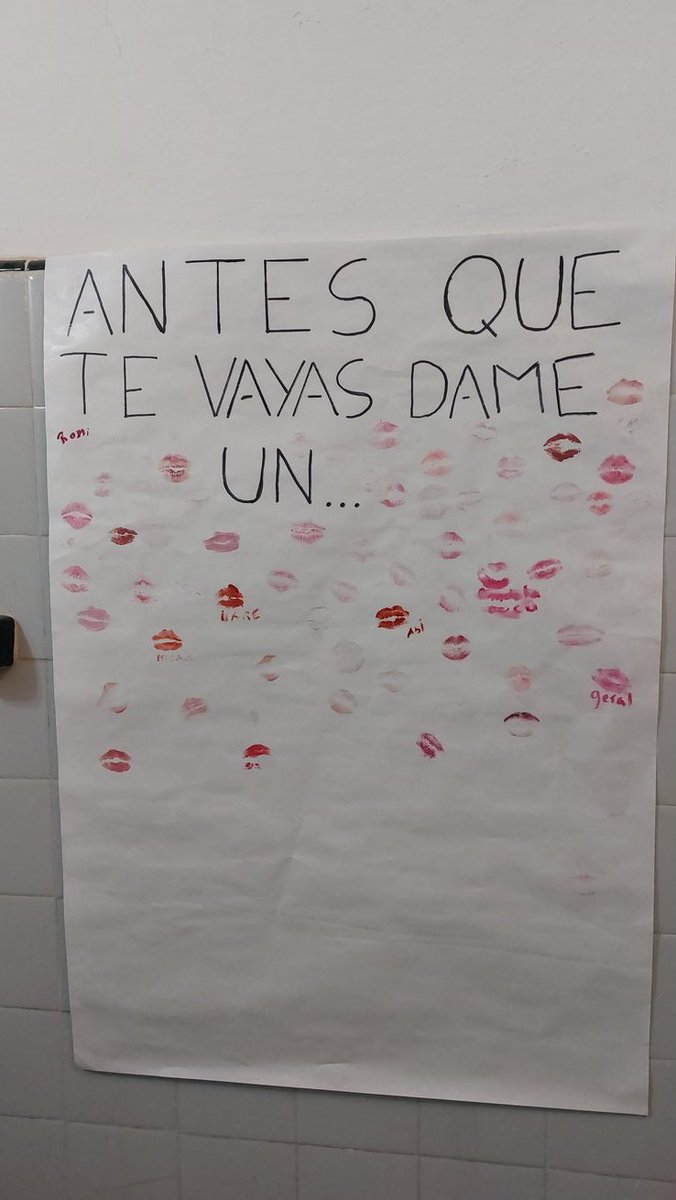 ANTES QUE
TE VAYAS DAME
UN...
Romi
Abi
geral